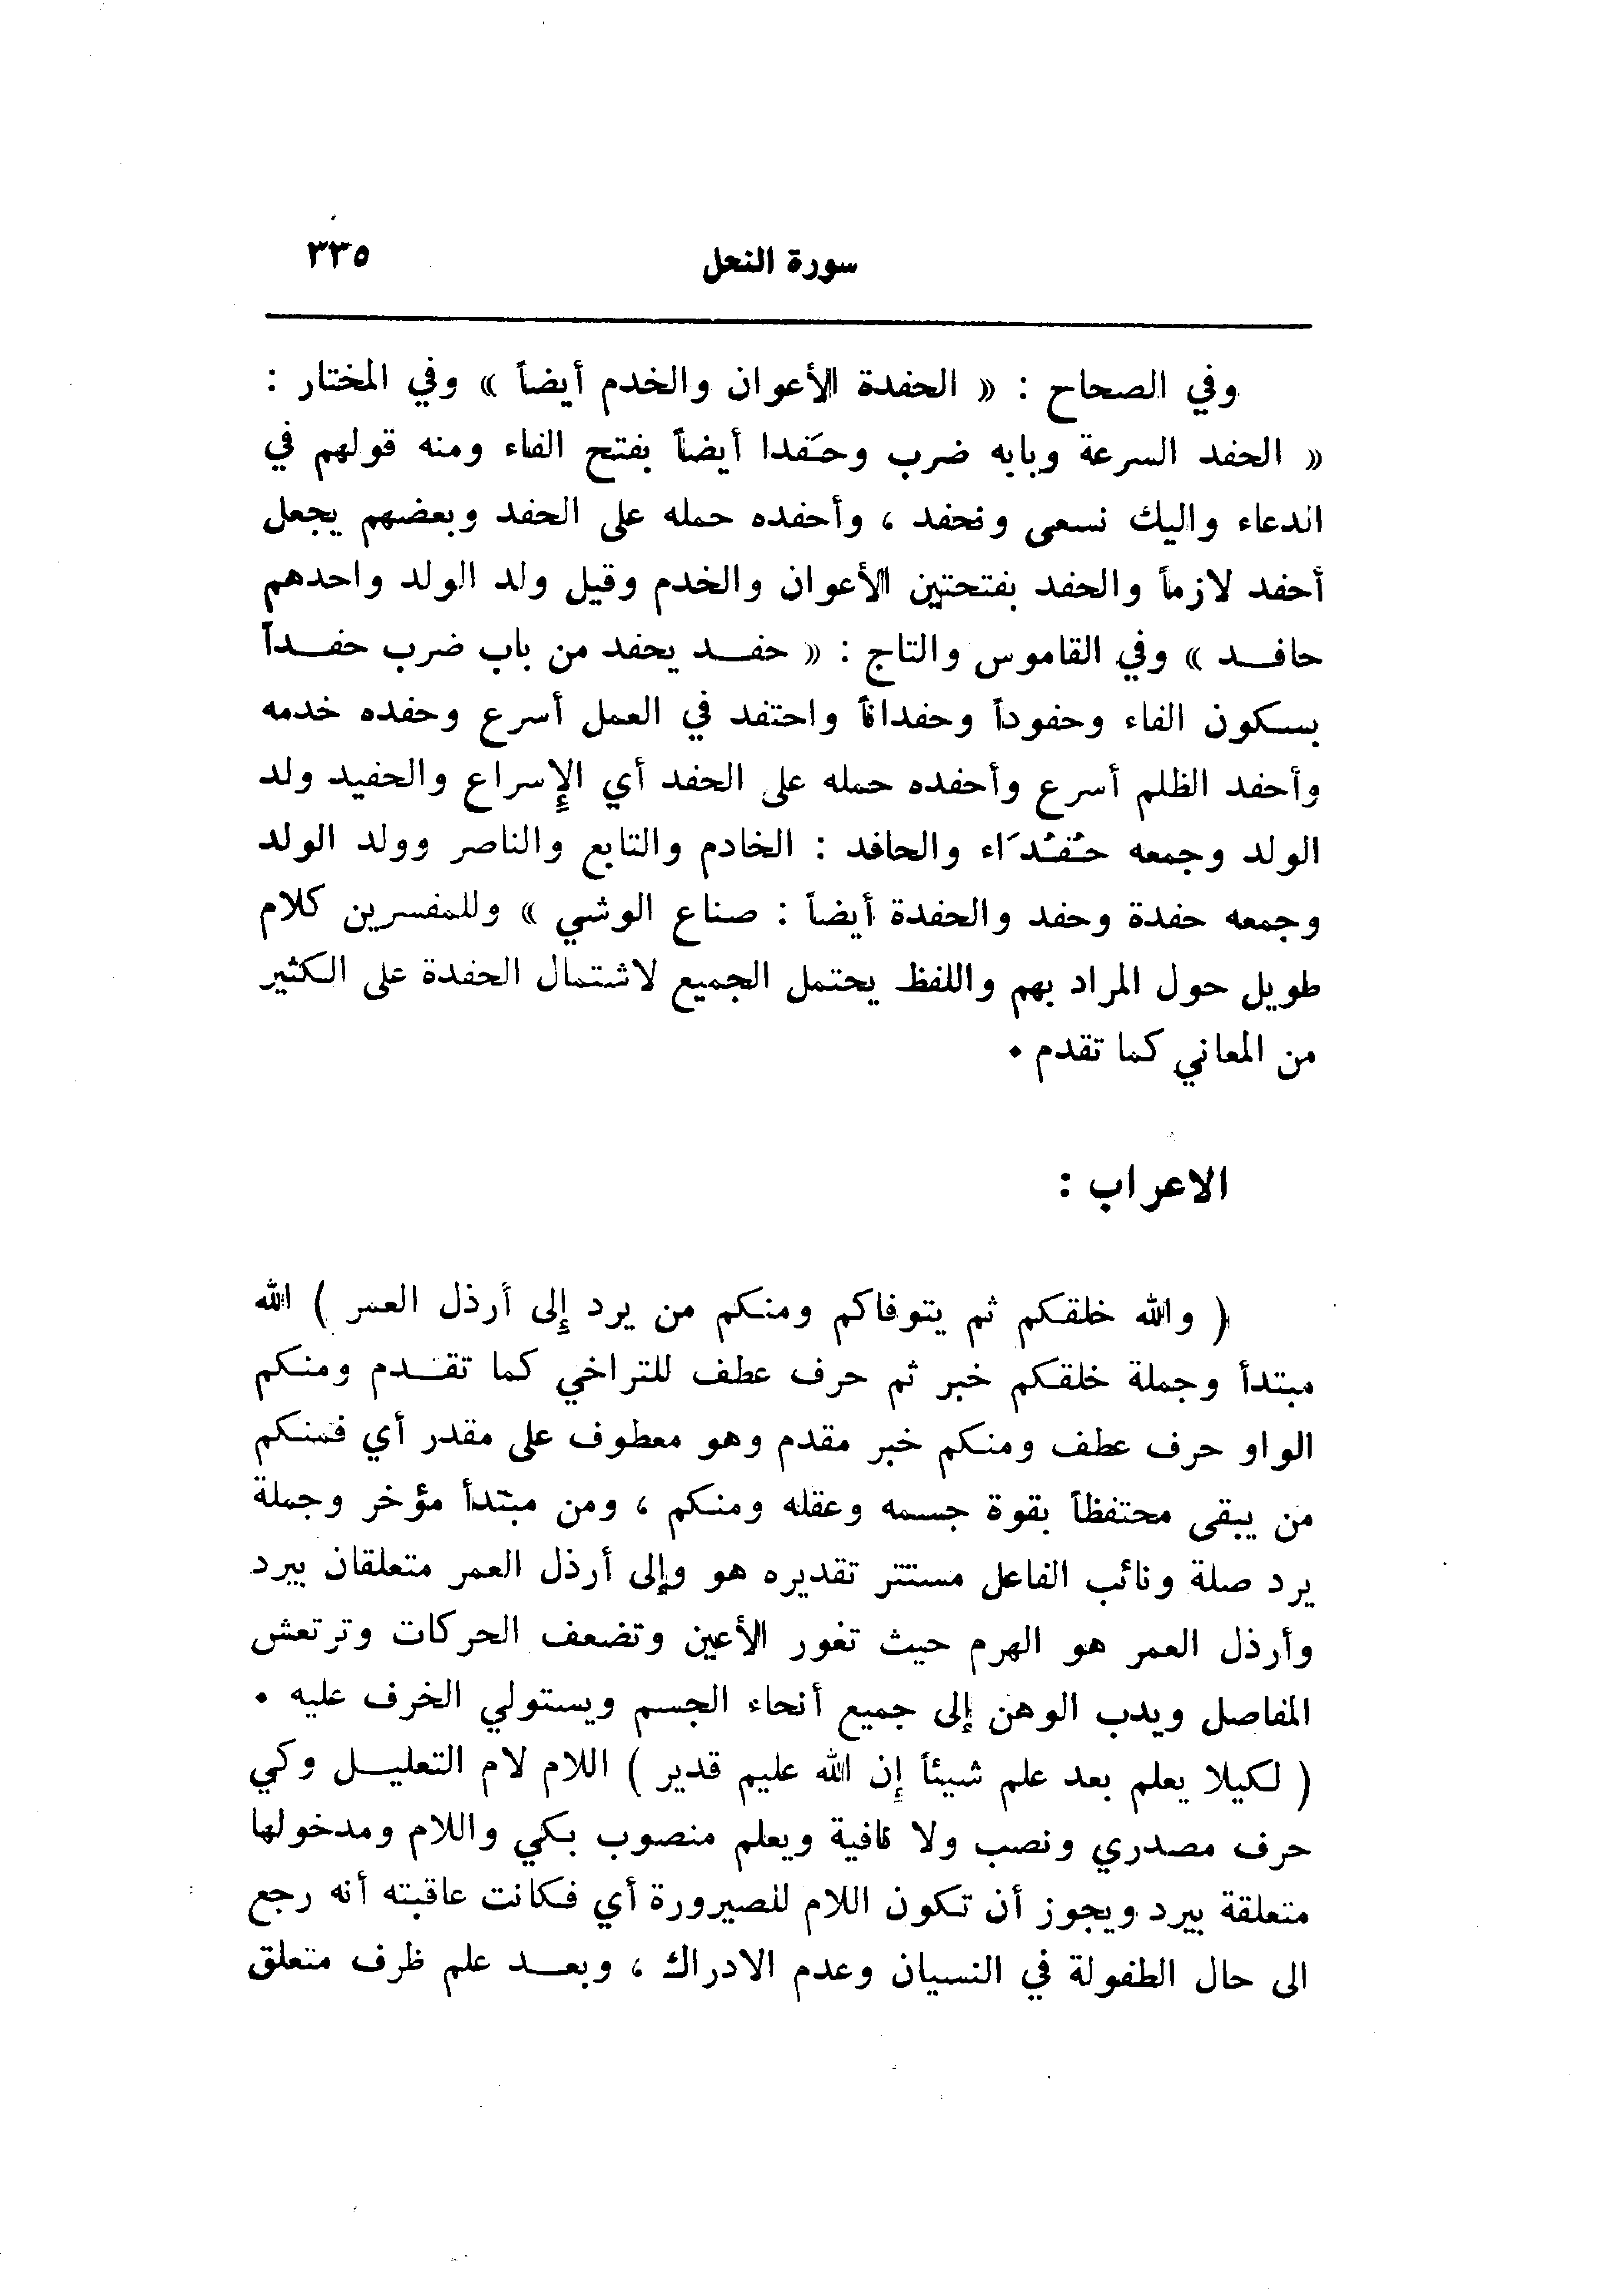 سورة النحل ٣٣٥
وفي الصحاح : « الحفدة الأعوان والخدم أيضاً » وفي المختار :
« الحفد السرعة وبابه ضرب وحَفدا أيضاً بفتح الفاء ومنه قولهم في
الدعاء واليك نسعى ونحفد ، وأحفده حمله على الحفد وبعضهم يجعل
أحفد لازماً والحفد بفتحتين الأعوان والخدم وقيل ولد الولد واحدهم
حافد » وفي القاموس والتاج : « حفد يحفد من باب ضرب حفداً
بسكون الفاء وحفوداً وحفداناً واحتفد في العمل أسرع وحفده خدمه
وأحفد الظلم أسرع وأحفده حمله على الحفد أي الإسراع والحفيد ولد
الولد وجمعه حُفُدَاء والحافد : الخادم والتابع والناصر وولد الولد
وجمعه حفدة وحفد والحفدة أيضاً : صناع الوشي » وللمفسرين كلام
طويل حول المراد بهم واللفظ يحتمل الجميع لاشتمال الحفدة على الكثير
من المعاني كما تقدم .
الاعراب :
( والله خلقكم ثم يتوفاكم ومنكم من يرد إلى أرذل العمر ) الله
مبتدأ وجملة خلقكم خبر ثم حرف عطف للتراخي كما تقدم ومنكم
الواو حرف عطف ومنكم خبر مقدم وهو معطوف على مقدر أي فمنكم
من يبقى محتفظاً بقوة جسمه وعقله ومنكم ، ومن مبتدأ مؤخر وجملة
يرد صلة ونائب الفاعل مستتر تقديره هو وإلى أرذل العمر متعلقان بيرد
وأرذل العمر هو الهرم حيث تغور الأعين وتضعف الحركات وترتعش
المفاصل ويدب الوهن إلى جميع أنحاء الجسم ويستولي الخرف عليه .
( لكيلا يعلم بعد علم شيئاً إن الله عليم قدير ) اللام لام التعليل وكي
حرف مصدري ونصب ولا نافية ويعلم منصوب بكي واللام ومدخولها
متعلقة بيرد ويجوز أن تكون اللام للصيرورة أي فكانت عاقبته أنه رجع
الى حال الطفولة في النسيان وعدم الادراك ، وبعد علم ظرف متعلق